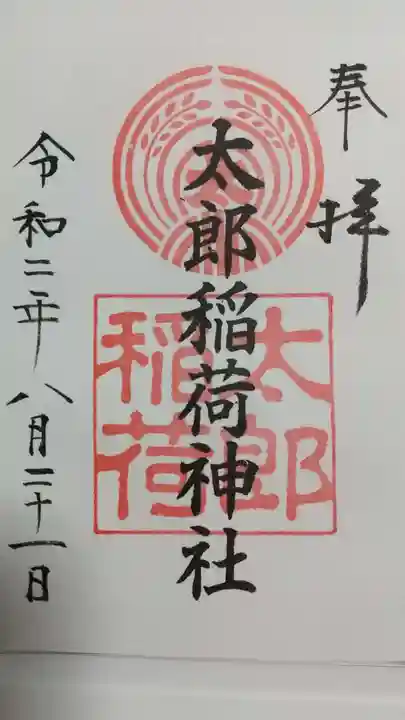 奉拝
太郎稲荷神社
太郎
稲荷
令和二年八月二十一日